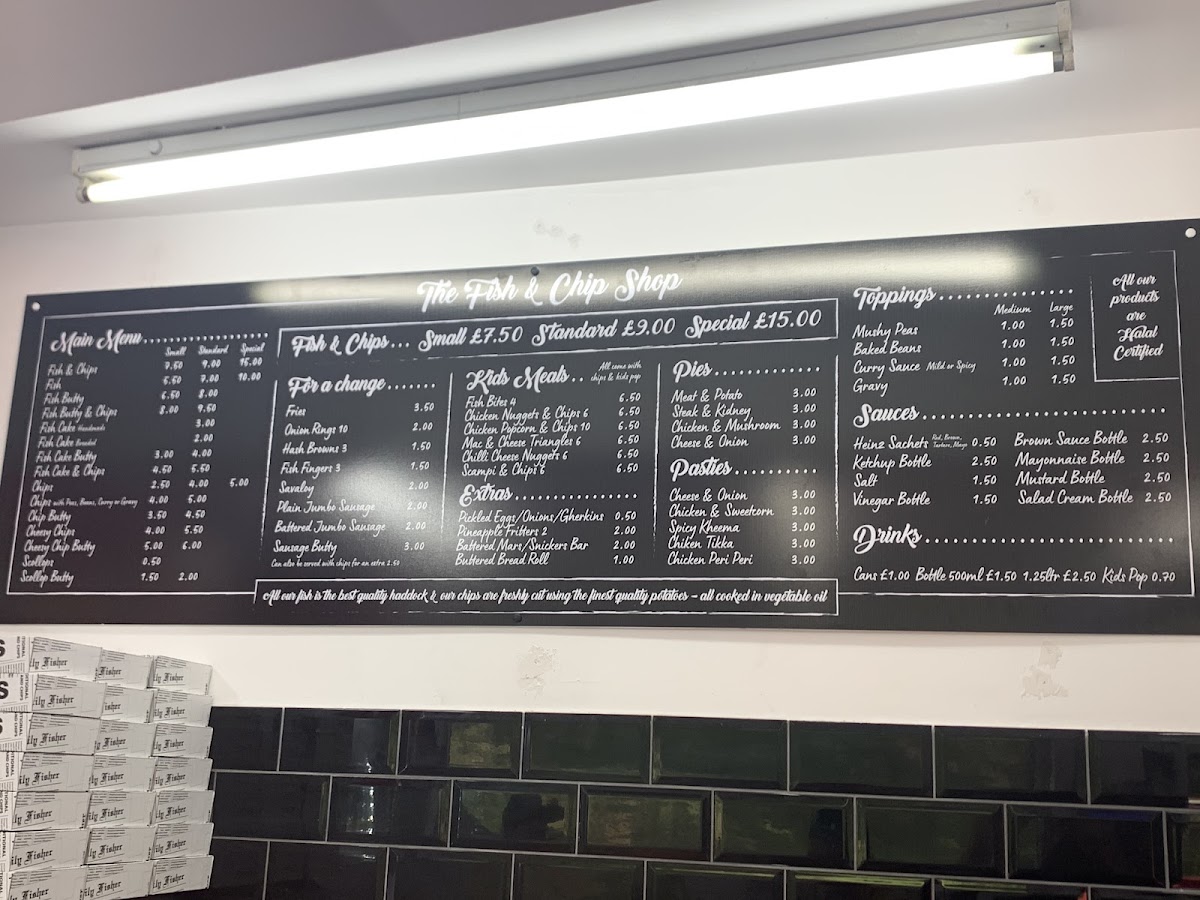 The Fish & Chip Shop
Main Menu
Small Standard Special
Fish & Chips 7.50 9.00 15.00
Fish 5.50 7.00 10.00
Fish Butty 6.50 8.00
Fish Butty & Chips 8.00 9.50
Fish Cake Handmade 3.00
Fish Cake Breaded 2.00
Fish Cake Butty 3.00 4.00
Fish Cake & Chips 4.50 5.50
Chips 2.50 4.00 5.00
Chips with Peas, Beans, Curry or Gravy 4.00 5.00
Chip Butty 3.50 4.50
Cheesy Chips 4.00 5.50
Cheesy Chip Butty 5.00 6.00
Scollops 0.50
Scollop Butty 1.50 2.00
Fish & Chips... Small £7.50 Standard £9.00 Special £15.00
For a change
Fries 3.50
Onion Rings 10 2.00
Hash Browns 3 1.50
Fish Fingers 3 1.50
Savaloy 2.00
Plain Jumbo Sausage 2.00
Battered Jumbo Sausage 2.00
Sausage Butty 3.00
Can also be served with chips for an extra 2.50
Kids Meals.. All come with chips & kids pop
Fish Bites 4 6.50
Chicken Nuggets & Chips 6 6.50
Chicken Popcorn & Chips 10 6.50
Mac & Cheese Triangles 6 6.50
Chilli Cheese Nuggets 6 6.50
Scampi & Chips 6 6.50
Extras
Pickled Eggs/Onions/Gherkins 0.50
Pineapple Fritters 2 2.00
Battered Mars/Snickers Bar 2.00
Buttered Bread Roll 1.00
Pies
Meat & Potato 3.00
Steak & Kidney 3.00
Chicken & Mushroom 3.00
Cheese & Onion 3.00
Pasties
Cheese & Onion 3.00
Chicken & Sweetcorn 3.00
Spicy Kheema 3.00
Chiken Tikka 3.00
Chicken Peri Peri 3.00
All our fish is the best quality haddock & our chips are freshly cut using the finest quality potatoes – all cooked in vegetable oil
Toppings
Medium Large
Mushy Peas 1.00 1.50
Baked Beans 1.00 1.50
Curry Sauce Mild or Spicy 1.00 1.50
Gravy 1.00 1.50
All our
products
are
Halal
Certified
Sauces
Heinz Sachets Red, Brown, Tartare, Mayo 0.50
Ketchup Bottle 2.50
Salt 1.50
Vinegar Bottle 1.50
Brown Sauce Bottle 2.50
Mayonnaise Bottle 2.50
Mustard Bottle 2.50
Salad Cream Bottle 2.50
Drinks
Cans £1.00 Bottle 500ml £1.50 1.25ltr £2.50 Kids Pop 0.70
ily Fisher